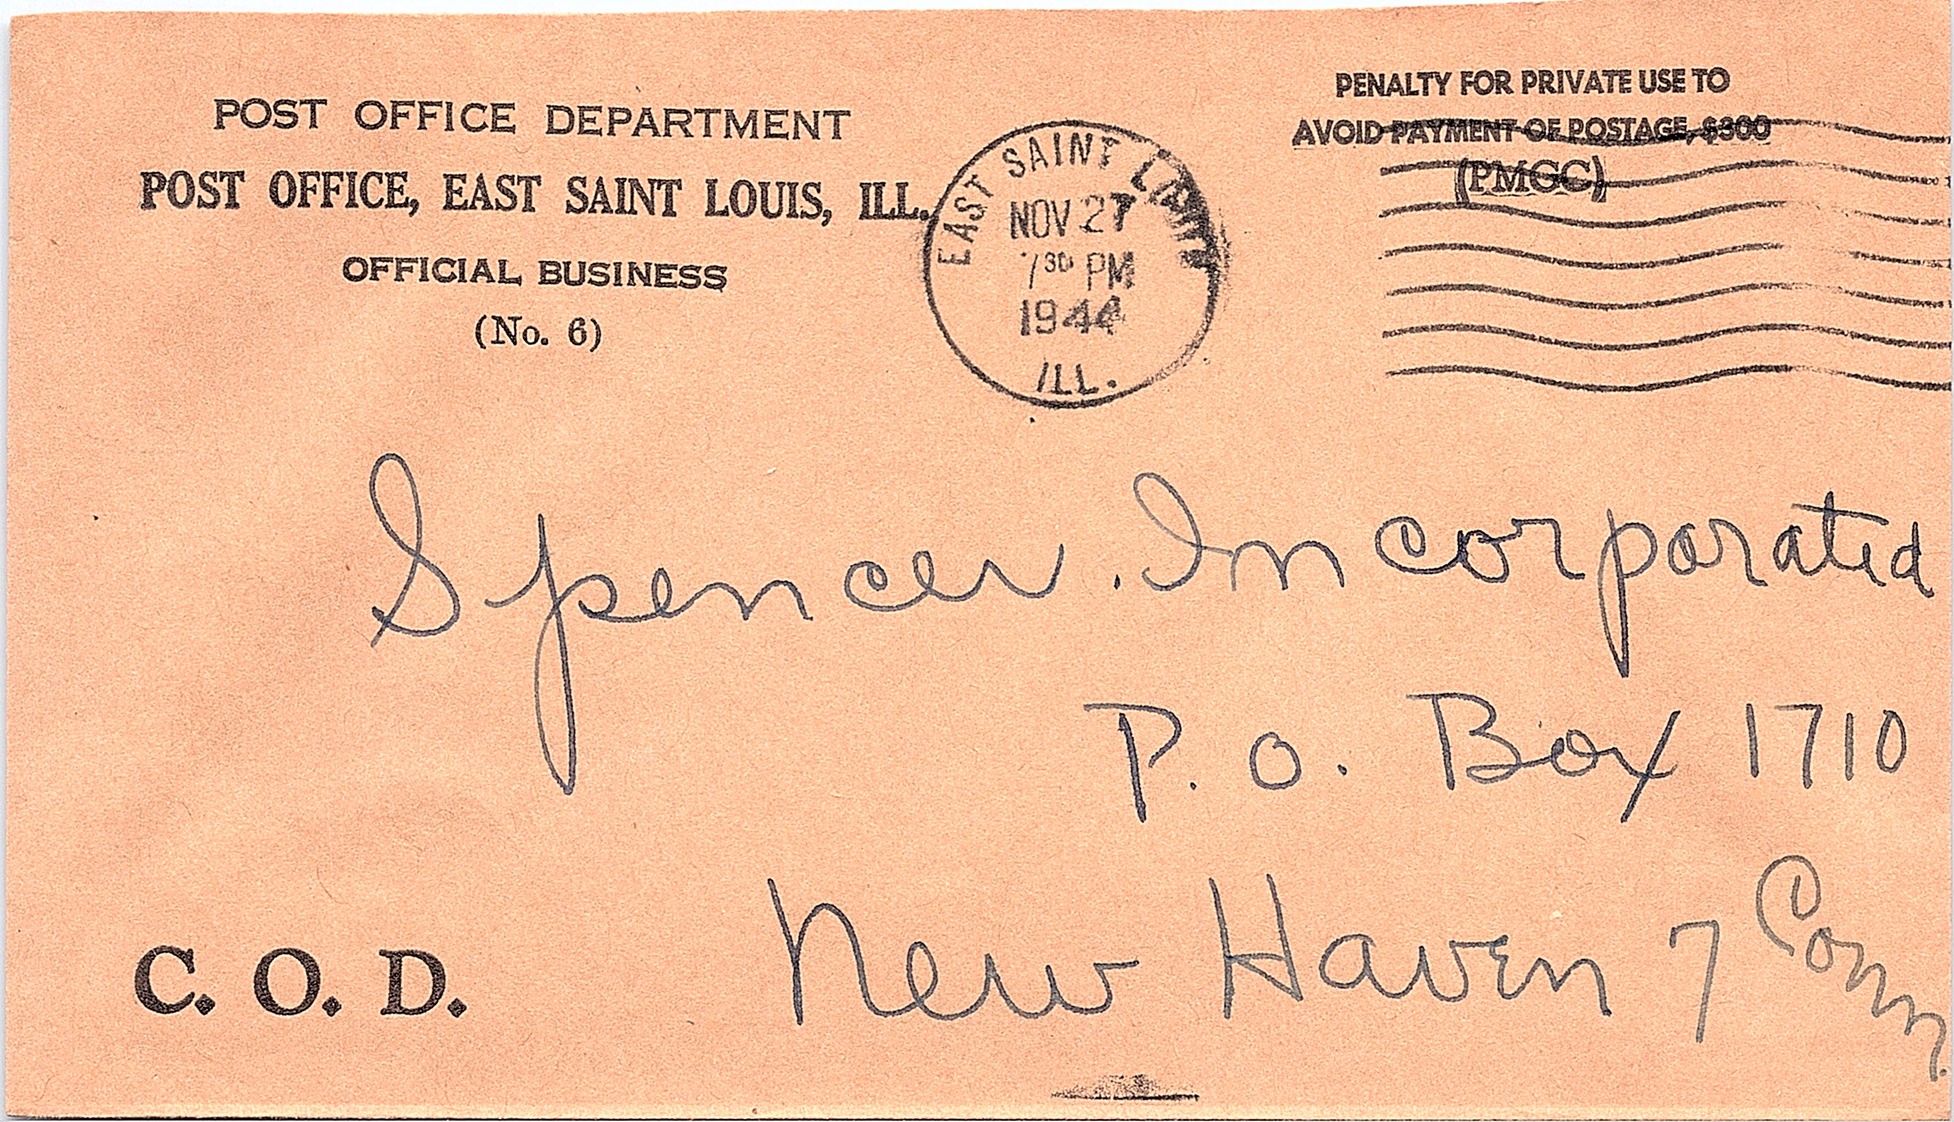 POST OFFICE DEPARTMENT
POST OFFICE, EAST SAINT LOUIS, ILL.
OFFICIAL BUSINESS
(No. 6)
EAST SAINT LOUIS
NOV 27
7 30 PM
1944
ILL.
PENALTY FOR PRIVATE USE TO
AVOID PAYMENT OF POSTAGE, $300
(PMGC)
Spencer. Incorporated
P. O. Box 1710
New Haven 7 Conn.
C. O. D.